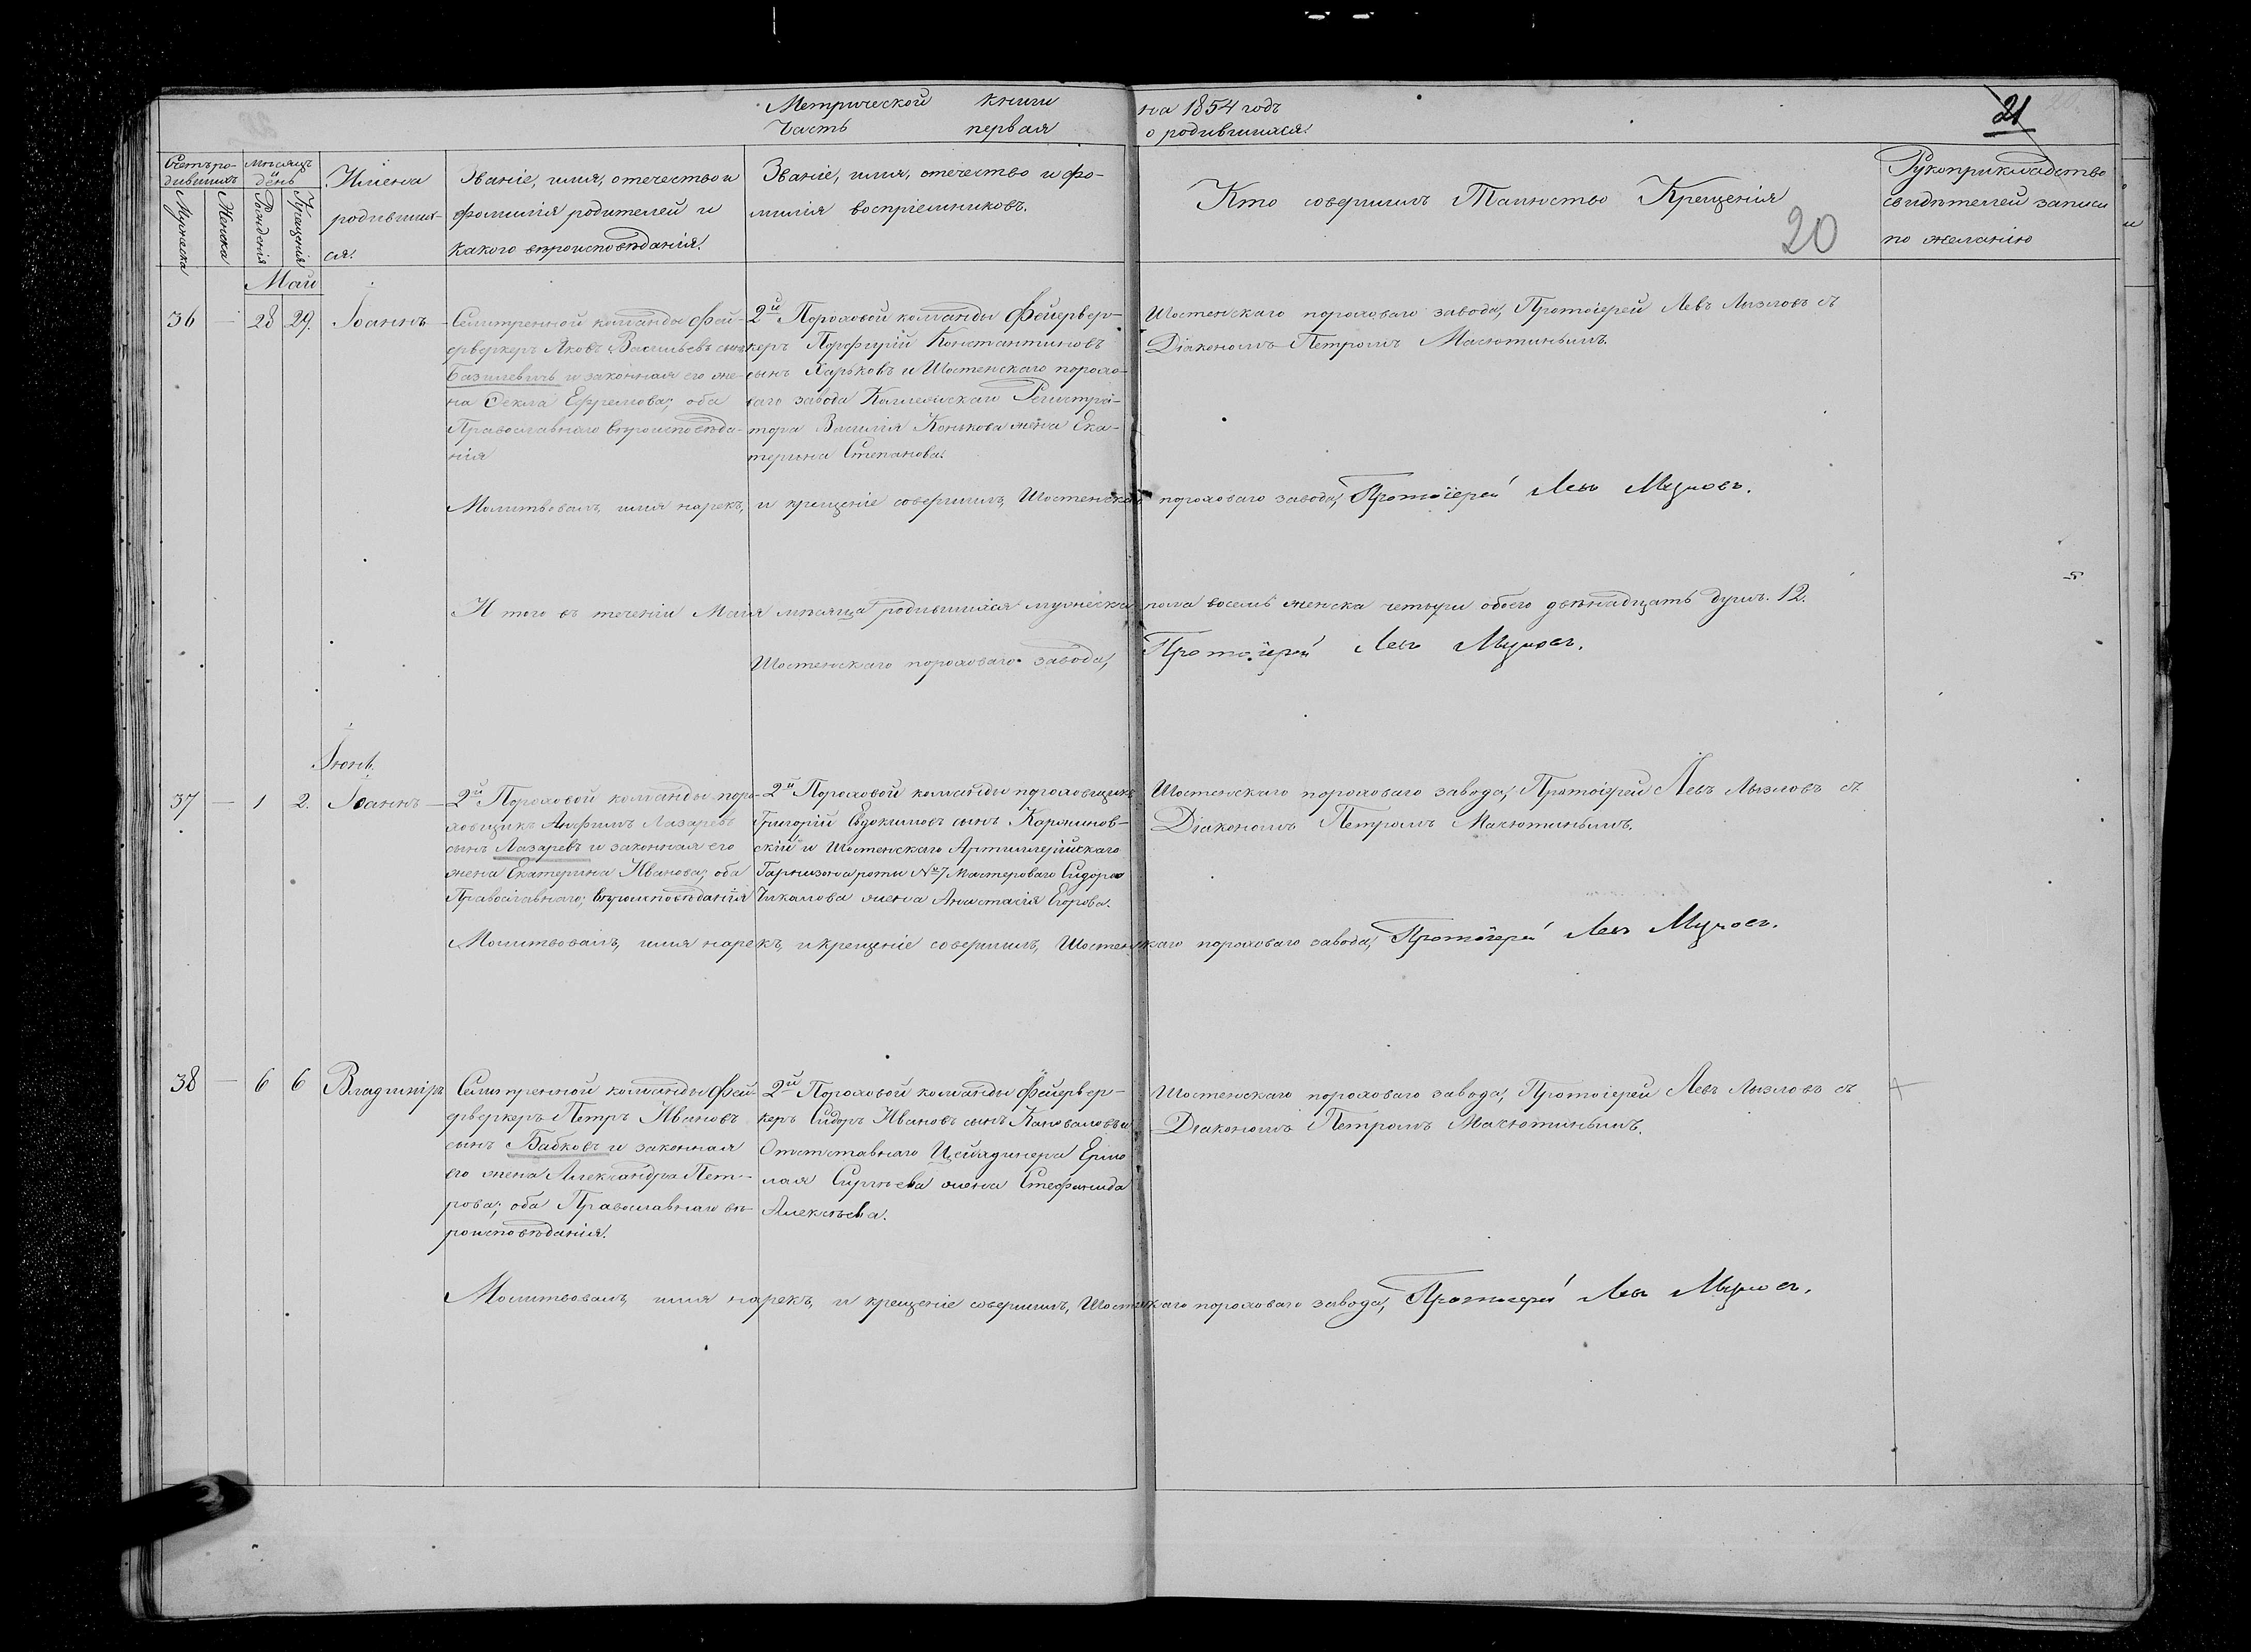 Метрической книги на 1854 годъ
Часть первая о родившихся.
21
20
Счетъ родившихъ
Мужеска
Женска
Мѣсяцъ и день
Рожденія
Крещенія
Имена
родивших-
ся.
Званіе, имя, отечество и
фамилія родителей и
какого вѣроисповѣданія.
Званіе, имя, отечество и фа-
милія воспріемниковъ.
Кто совершилъ Таинство Крещенія
Рукоприкладство
свидѣтелей записи
по желанію
Май
36 — 28 29. Іоаннъ
Селитренной команды Фей-
ерверкеръ Яковъ Васильевъ сынъ
Базилевичъ и законная его же-
на Ѳекла Ефремова, оба
Православнаго вѣроисповѣда-
нія
2й Пороховой команды Фейервер-
керъ Порфирій Константиновъ
сынъ Харьковъ и Шостенскаго порохо-
ваго завода Коллежскаго Регистра-
тора Василія Конькова жена Ека-
терина Степанова.
Шостенскаго пороховаго завода, Протоіерей Левъ Мызловъ съ
Діакономъ Петромъ Масютинымъ.
Молитвовалъ, имя нарекъ, и крещеніе совершилъ, Шостенскаго пороховаго завода, Протоіерей Левъ Мызловъ.
И того въ теченіи Маія мѣсяца родившихся мужеска пола восемь женска четыри обоего двѣнадцать душъ. 12.
Шостенскаго пороховаго завода, Протоіерей Левъ Мызловъ.
Іюнь.
37 — 1 2. Іоаннъ
2й Пороховой команды поро-
ховщикъ Анфимъ Лазаревъ
сынъ Лазаревъ и законная его
жена Екатерина Иванова, оба
Православнаго, вѣроисповѣданія
2й Пороховой команды пороховщикъ
Григорій Евдокимовъ сынъ
скій и Шостенскаго Артиллерійскаго
Гарнизона роты № 7 Мастероваго Сидора
Чикалова жена Анастасія Егорова.
Шостенскаго пороховаго завода, Протоіерей Левъ Мызловъ съ
Діакономъ Петромъ Масютинымъ.
Молитвовалъ, имя нарекъ, и крещеніе совершилъ, Шостенскаго пороховаго завода, Протоіерей Левъ Мызловъ.
38 — 6 6 Владиміръ
Селитренной команды Фей-
ерверкеръ Петръ Ивановъ
сынъ Бабковъ и законная
его жена Александра Пет-
рова, оба Православнаго вѣ-
роисповѣданія.
2й Пороховой команды Фейервер-
керъ Сидоръ Ивановъ сынъ Кановаловъ и
Отставнаго Цейхдинера Ермо
лая Сергѣева жена Стефанида
Алексѣева.
Шостенскаго пороховаго завода, Протоіерей Левъ Мызловъ съ
Діакономъ Петромъ Масютинымъ.
Молитвовалъ, имя нарекъ, и крещеніе совершилъ, Шостенскаго пороховаго завода, Протоіерей Левъ Мызловъ.